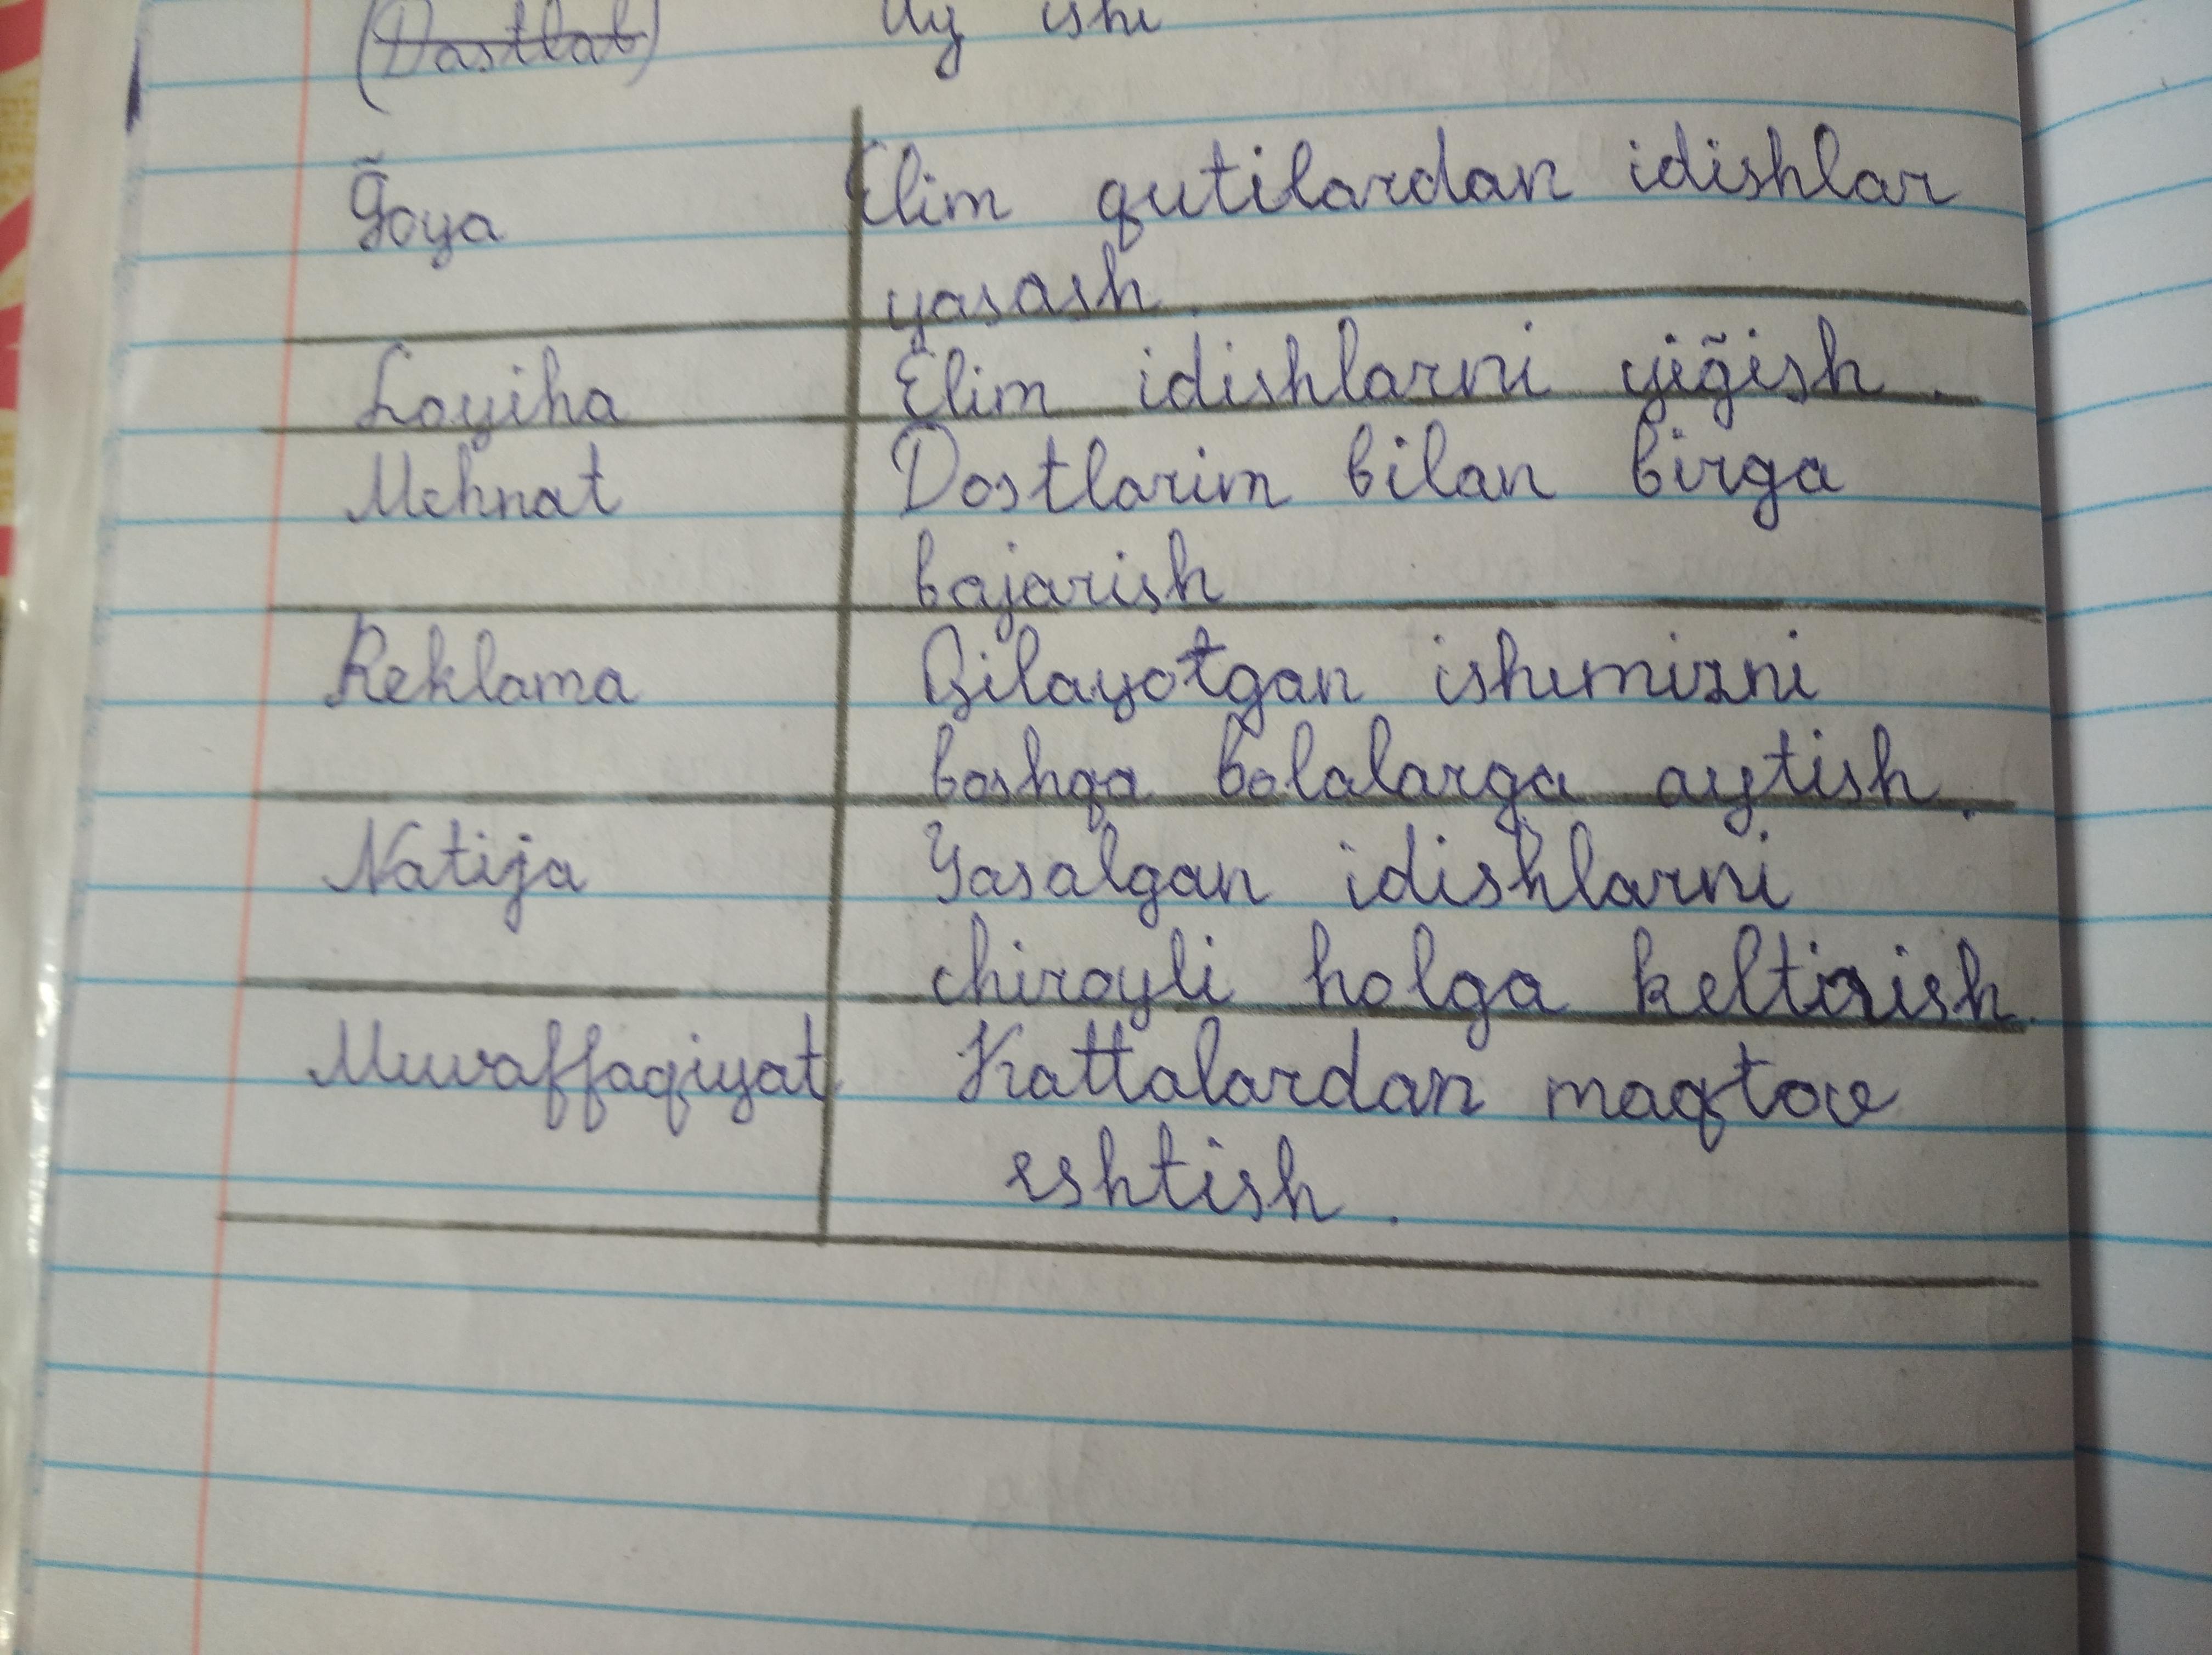 (Dastlab) Uy ishi
G̃oya Elim qutilardan idishlar
yasash.
Loyiha Elim idishlarni yig̃ish.
Mehnat Dostlarim bilan birga
bajarish
Reklama Qilayotgan ishimizni
boshqa bolalarga aytish.
Natija Yasalgan idishlarni
chiroyli holga keltirish.
Muvaffaqiyat Kattalardan maqtov
eshtish.